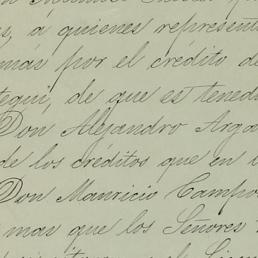 s, á quienes represent
más por el crédito de
tegui, de que es tened
Don Alejandro Arga
de los créditos que en
Don Mauricio Campo
mas que los Señores